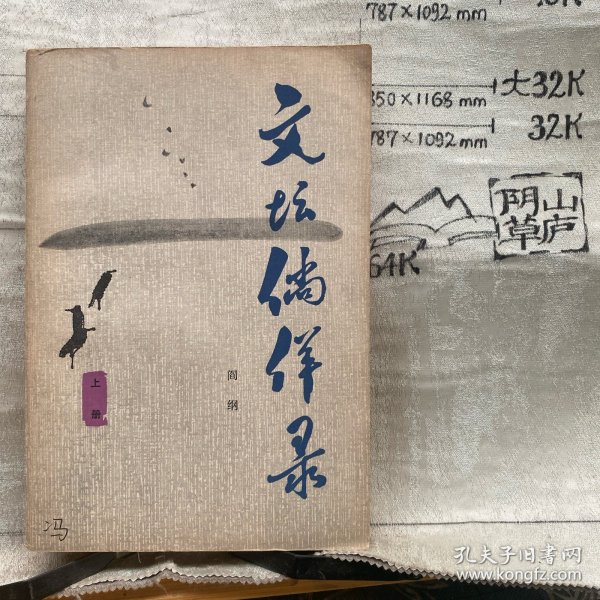 文坛倘佯录
阎纲
上册
冯
787×1092 mm
850×1168 mm
大32K
787×1092 mm
32K
64K
阴山
草庐
孔夫子旧书网
www.kongfz.com